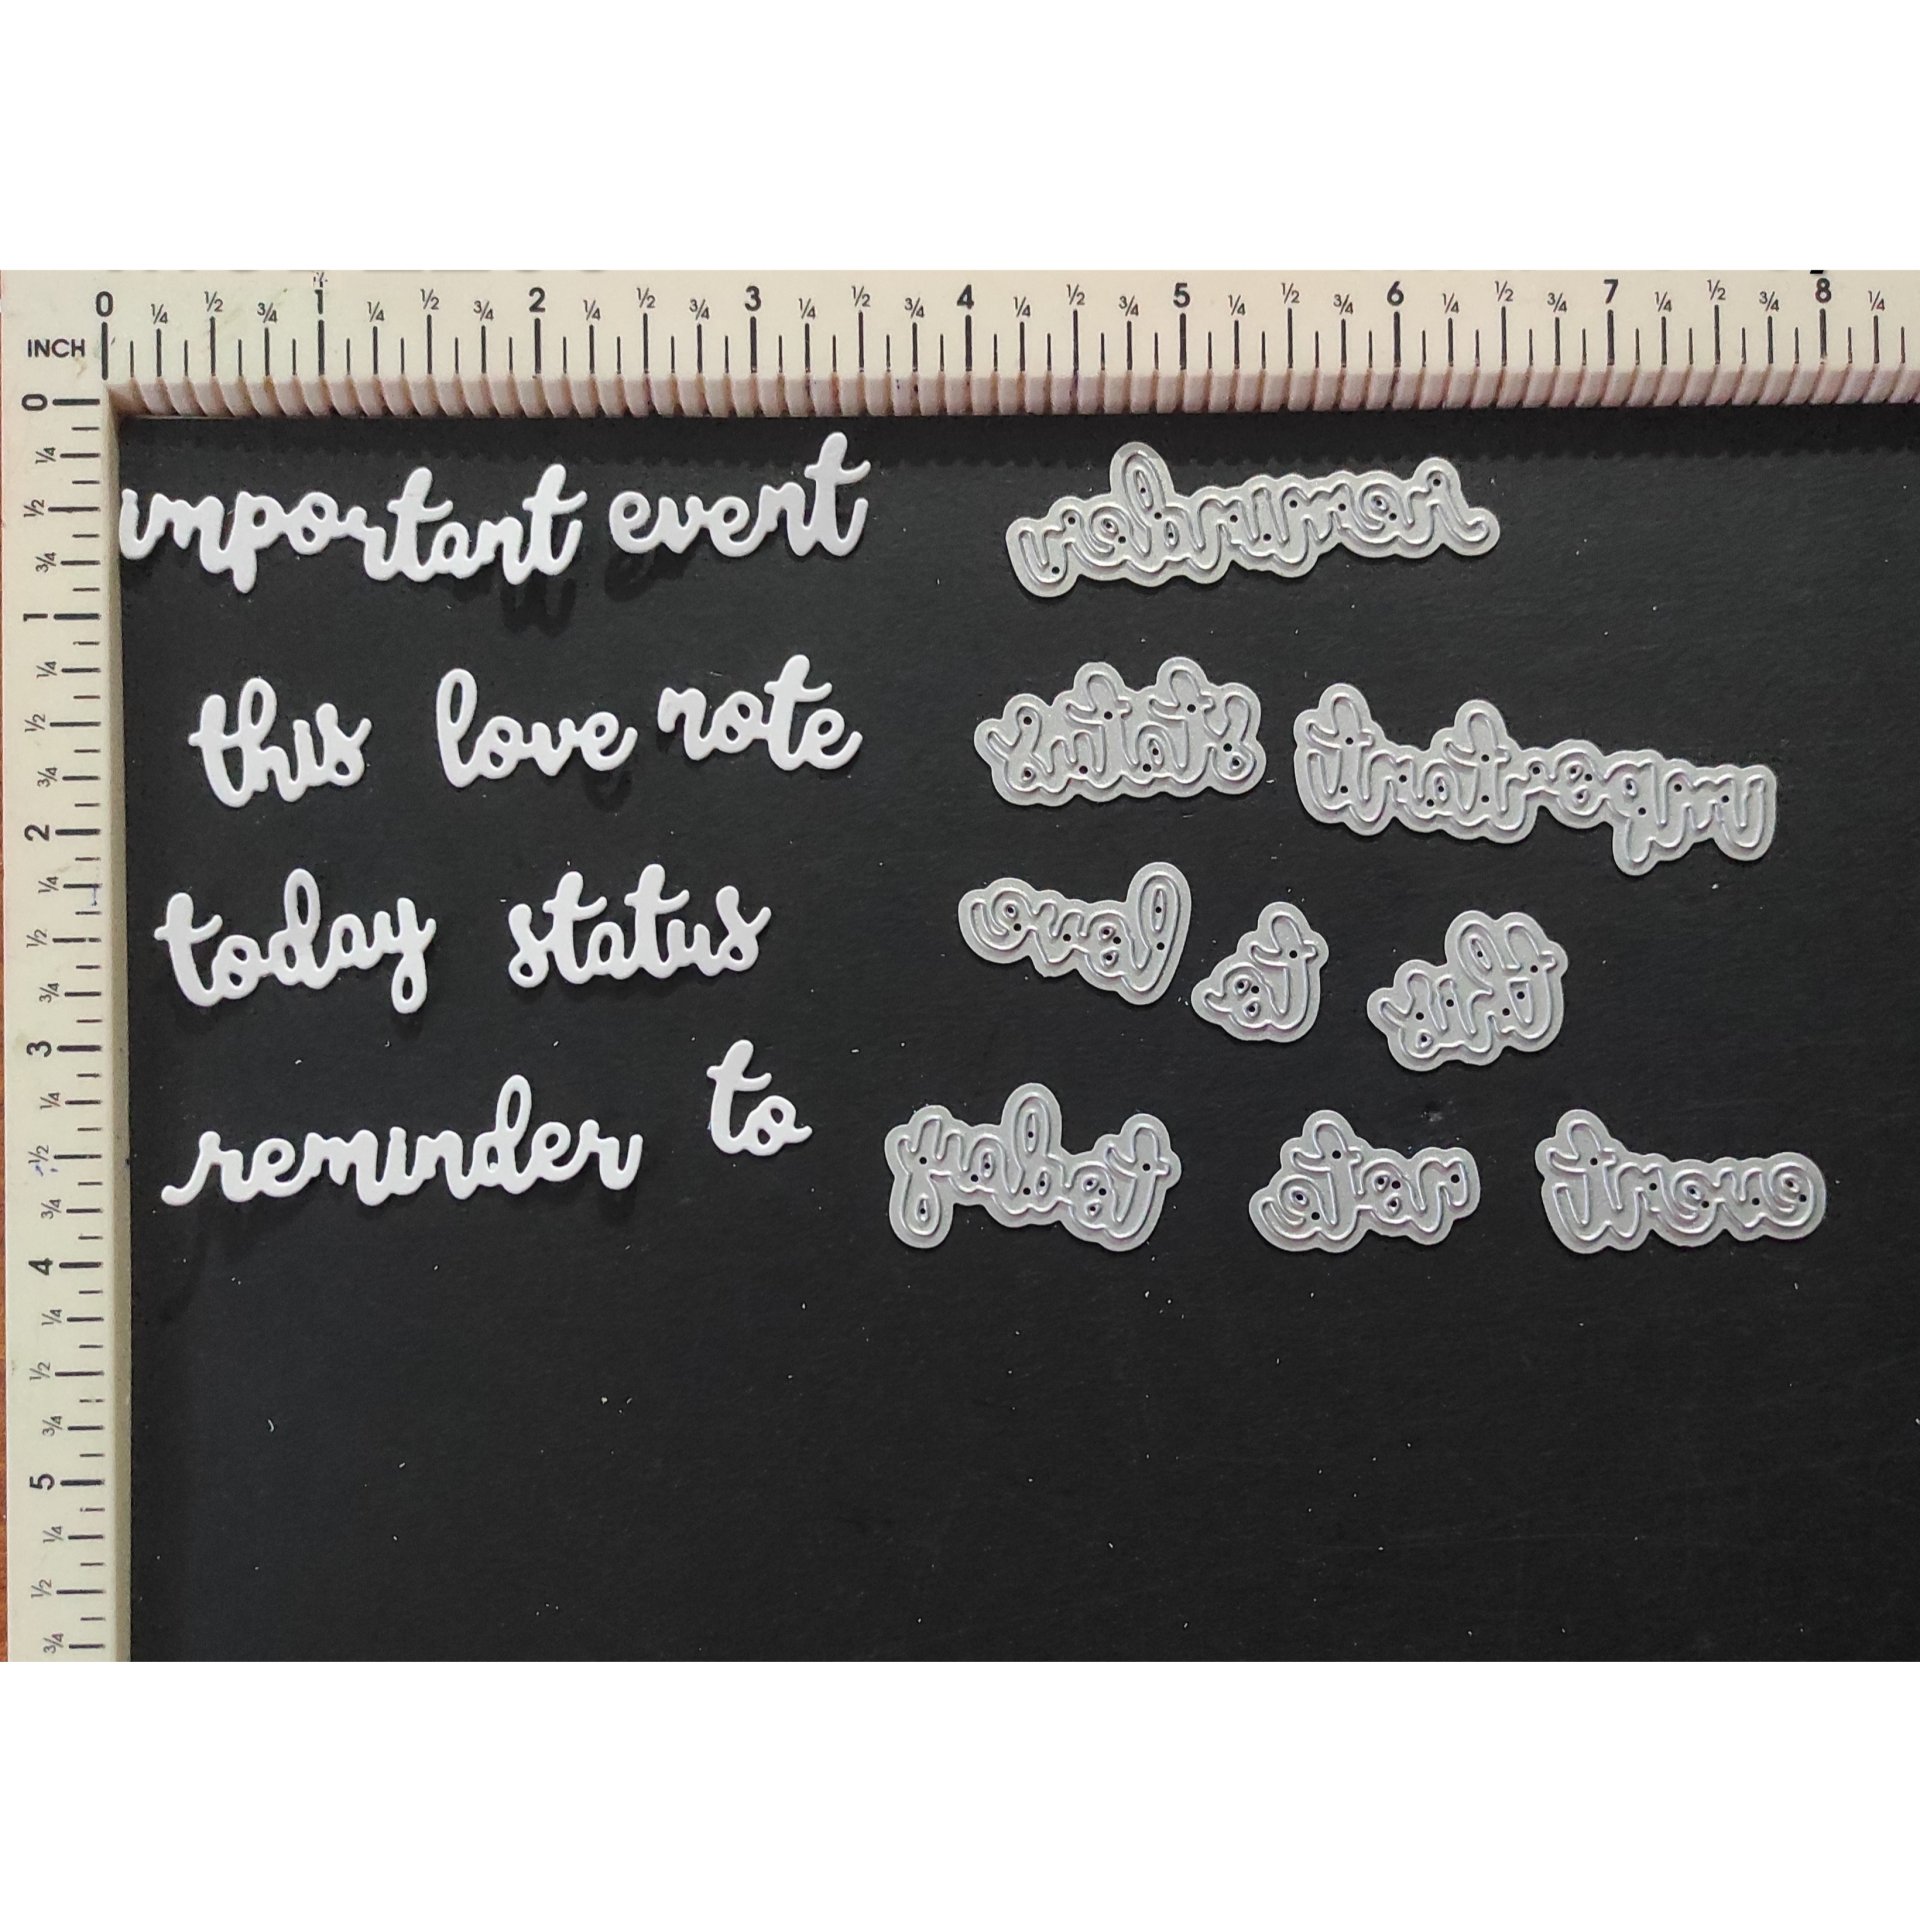 0 ¼ ½ ¾ 1 ¼ ½ ¾ 2 ¼ ½ ¾ 3 ¼ ½ ¾ 4 ¼ ½ ¾ 5 ¼ ½ ¾ 6 ¼ ½ ¾ 7 ¼ ½ ¾ 8 ¼
INCH
0 ¼ ½ ¾ 1 ¼ ½ ¾ 2 ¼ ½ ¾ 3 ¼ ½ ¾ 4 ¼ ½ ¾ 5 ¼ ½ ¾
important event
this love note
today status
reminder to
reminder
status important
love to this
today note event